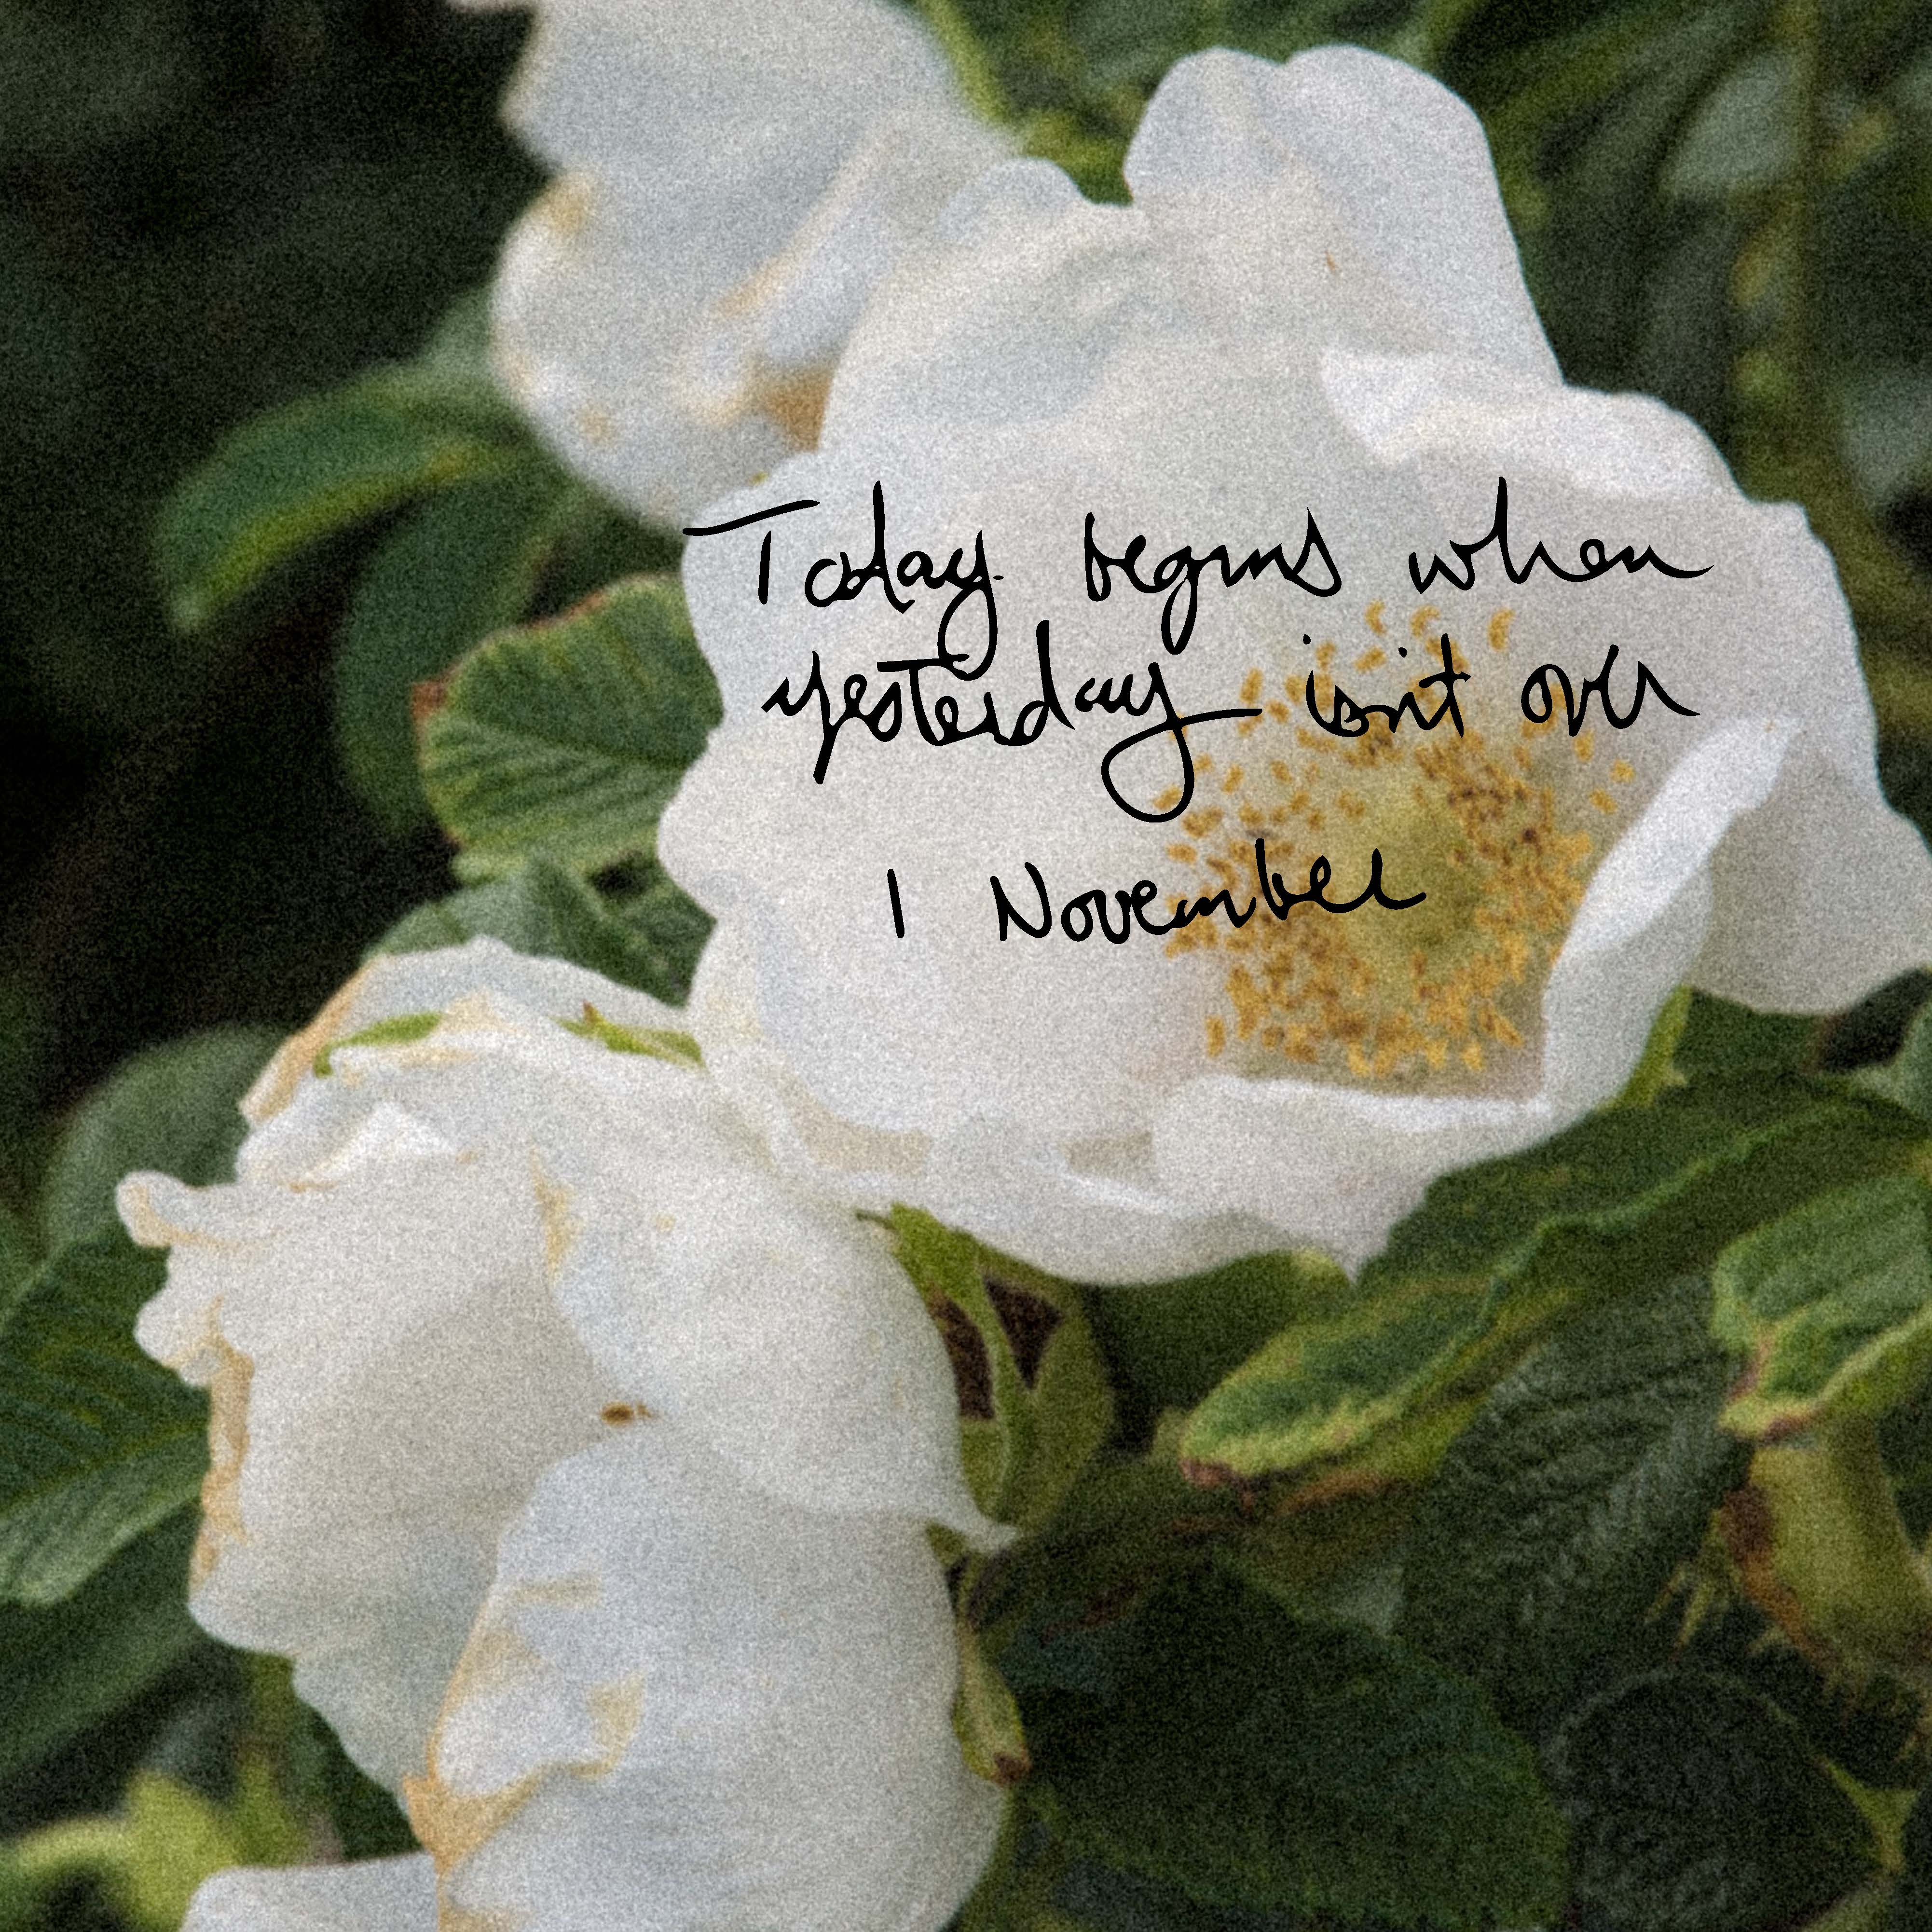 Today begins when
yesterday isn't over
1 November